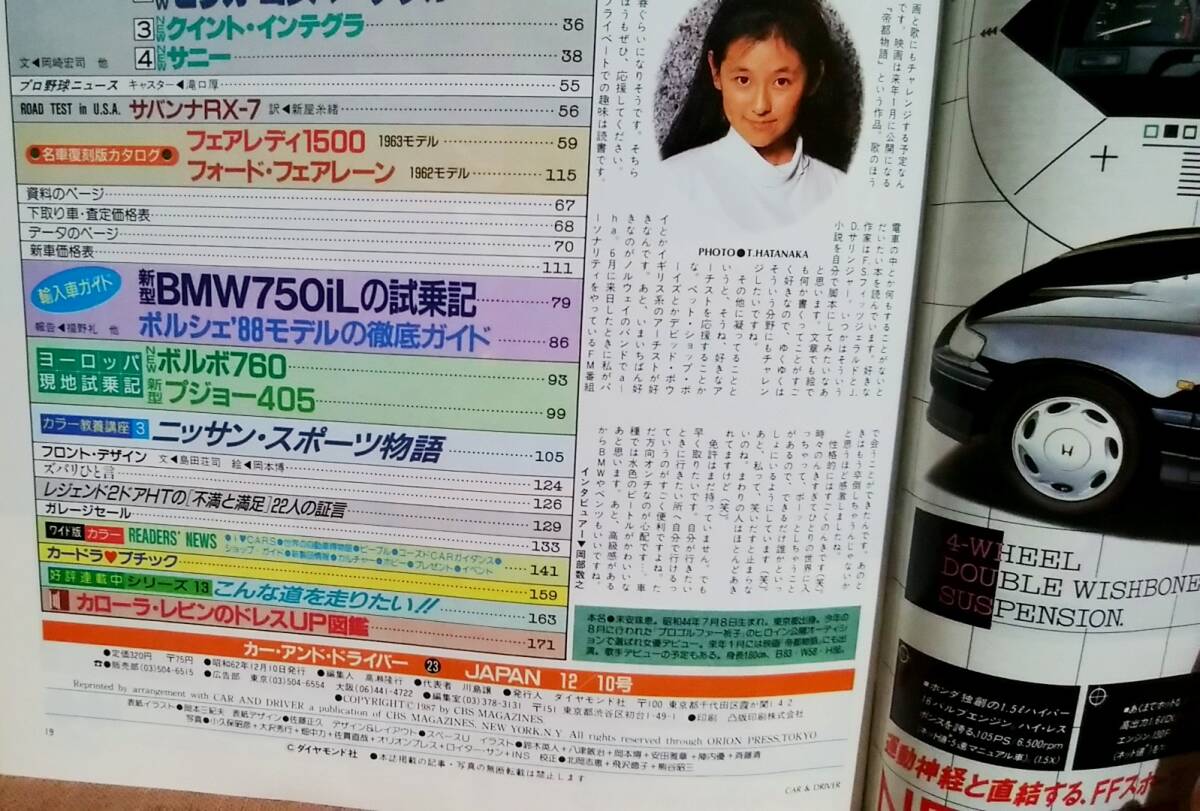 3 NEW クイント・インテグラ 36
4 NEW サニー 38
文◀岡崎宏司 他
プロ野球ニュース キャスター◀滝口厚 55
ROAD TEST in U.S.A. サバンナRX-7 訳◀新屋糸緒 56
●名車復刻版カタログ●
フェアレディ1500 1963モデル 59
フォード・フェアレーン 1962モデル 115
資料のページ 67
下取り車・査定価格表 68
データのページ 70
新車価格表 111
輸入車ガイド
新型BMW750iLの試乗記 79
ポルシェ'88モデルの徹底ガイド 86
報告◀福野礼 他
ヨーロッパ現地試乗記
NEW ボルボ760 93
新型 プジョー405 99
カラー教養講座 3 ニッサン・スポーツ物語 105
フロント・デザイン 文◀島田荘司 絵◀岡本博 124
ズバリひと言 126
レジェンド2ドアHTの[不満と満足]22人の証言 129
ガレージセール 133
ワイド版 カラー READERS' NEWS
●I♥CARS●世界の自動車博物館●ピープル●ユーズドCARガイダンス●
ショップ・ガイド●新製品情報●カルチャー●ホビー●プレゼント●イベント 141
カードラ♥ブチック 159
好評連載中 シリーズ13 こんな道を走りたい!! 163
カローラ・レビンのドレスUP図鑑 171
画と歌にもチャレンジする予定なん
です。映画は来年1月に公開になる
『帝都物語』という作品。歌のほう
春ぐらいになりそうです。そちら
ほうもぜひ、応援してください。
プライベートでの趣味は読書です。
PHOTO●T.HATANAKA
電車の中とか何もすることがないと
だいたい本を読んでいます。好きな
作家はF.S.フィッツジェラルドとJ.
D.サリンジャー。いつかはそういう
小説を自分で脚本にしてみたいなあ
と思います。文章でも絵で
も何か書くってことがすご
く好きなので、ゆくゆくは
そういう分野にもチャレン
ジしたいですね。
その他に凝ってることと
いうと、そうね、好きなア
ーチストを応援することか
な。ペット・ショップ・ボ
ーイズとかデビッド・ボウ
イとかイギリス系のアーチストが好
きなんです。あと、いまいちばん好
きなのがノルウェイのバンドでa-
ha。6月に来日したときに私がパ
ーソナリティをやっているFM番組
で会うことができたんです。あのと
きはもう卒倒しちゃうんじゃないか
と思うほど感激しました。
性格的にはすごくのんきです(笑)。
時々のんきすぎてひとりの世界に入
っちゃって、ボーッとしちゃうこと
があるので、できるだけ誰かといっ
しょにいるようにしています(笑)。
あと、私って、笑いだすと止まらな
いのね。まわりの人はほとんどあき
れてますけど(笑)。
免許はまだ持っていません。でも
早く取りたいです。自分が行きたい
ときに行きたい所へ自分で行けるっ
ていうのがすごく便利ですよね。た
だ方向オンチなのが心配です…。車
種では水色のビートルがかわいいな
あと思います。あと、高級感がある
からBMWやベンツもいいですね。
インタビュアー▼岡部数之
本名●末安珠恵。昭和44年7月8日生まれ。東京都出身。今年の
8月に行われた「プロゴルファー祈子」のヒロイン公開オーディシ
ョンで選ばれ女優デビュー。来年1月には映画『帝都物語』にも出
演。歌手デビューの予定もある。身長160cm、B83・W58・H86。
カー・アンド・ドライバー 23 JAPAN 12/10号
●定価320円 〒75円 ●昭和62年12月10日発行 ●編集人 高瀬隆行 ●代表者 川島譲 ●発行人 ダイヤモンド社 〒100 東京都千代田区霞が関1-4-2
☎●販売部(03)504-6515 ●広告部 東京(03)504-6554 大阪(06)441-4722 ●編集室(03)378-3131 〒151 東京都渋谷区初台1-49-1 ●印刷 凸版印刷株式会社
●COPYRIGHT©1987 by CBS MAGAZINES
Reprinted by arrangement with CAR AND DRIVER a publication of CBS MAGAZINES, NEW YORK, N.Y. All rights reserved through ORION PRESS, TOKYO
表紙イラスト●岡本三紀夫 表紙デザイン●佐藤正久 デザイン&レイアウト●スペースU イラスト●鈴木英人+八津敏治+岡本博+安田雅章+陣内優+斉藤清
写真●小久保昭彦+大沢秀行+畑中力+佐賀直哉+オリオンプレス+ロイター・サン+INS 校正●北岡志恵+飛沢徳子+熊谷昭三
©ダイヤモンド社 ●本誌掲載の記事・写真の無断転載は禁止します
19
CAR & DRIVER
4-WHEEL
DOUBLE WISHBONE
SUSPENSION.
●ホンダ独創の1.5ℓハイパー
16バルブエンジン ハイ・レス
ポンスを誇る、105PS/6,500rpm
(ネット値・5速マニュアル車)〈1.5X〉
運動神経と直結する、FFスポー